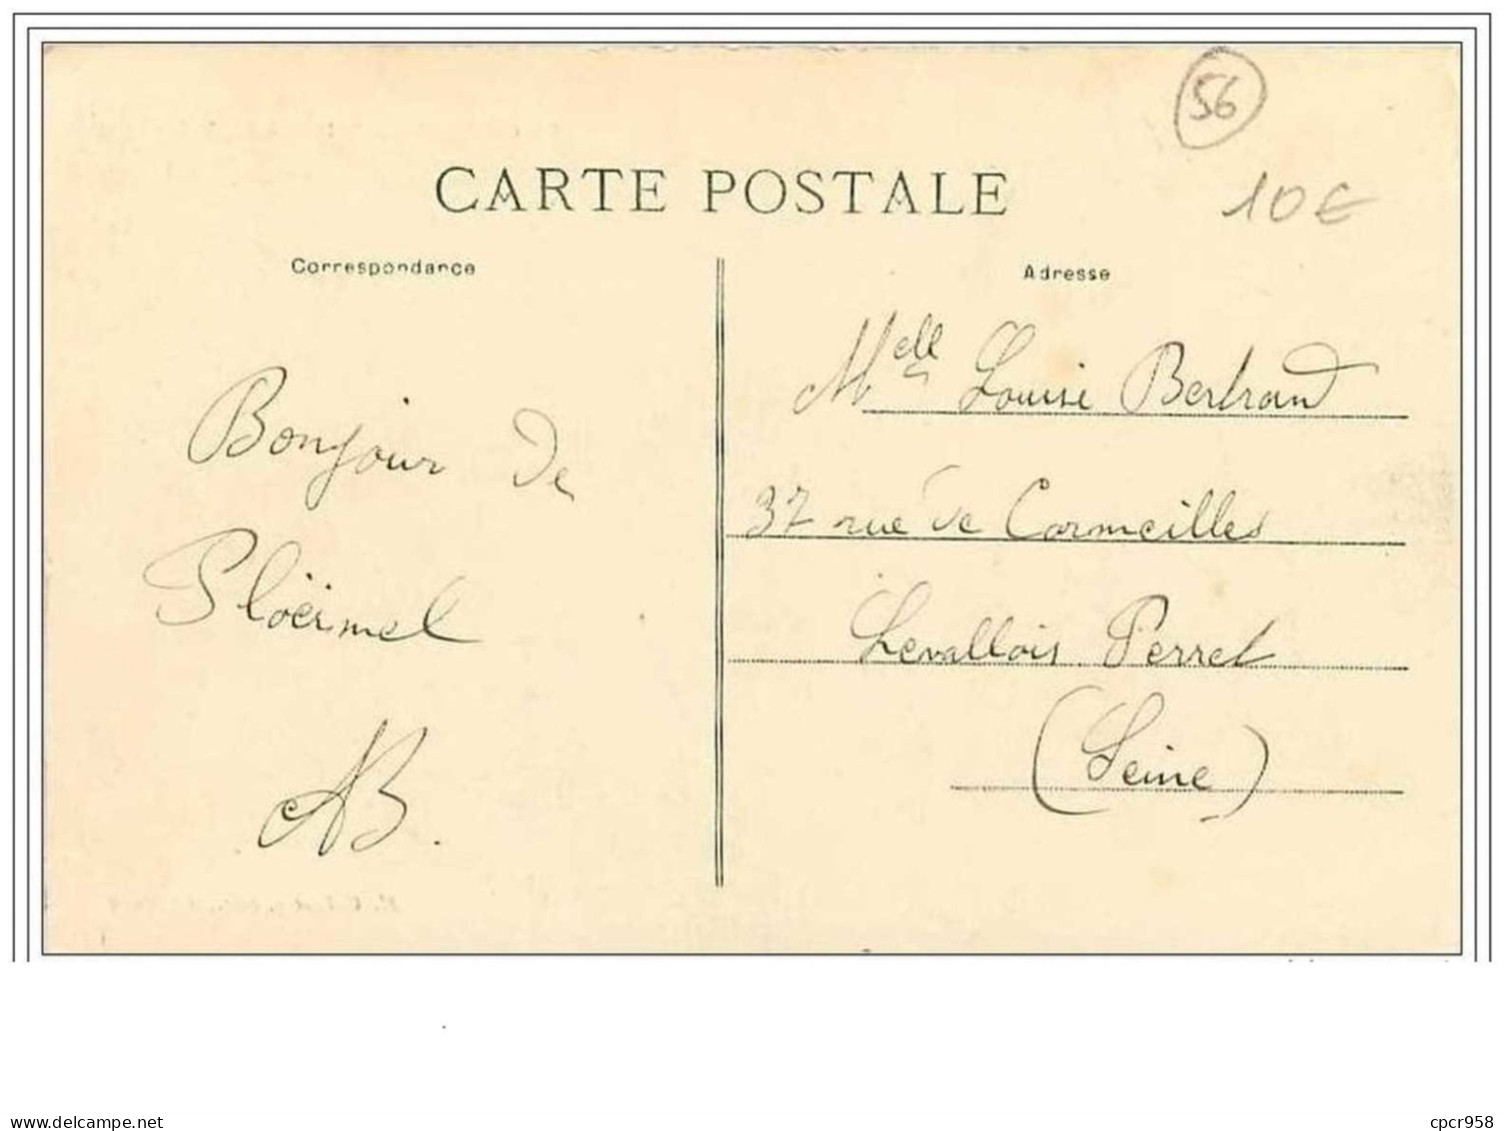 56
10€
CARTE POSTALE
Correspondance
Adresse
Bonjour de
Ploërmel
AB.
Melle Louise Bertrand
37 rue de Cormeilles
Levallois Perret
(Seine)
delcampe.net
cpcr958